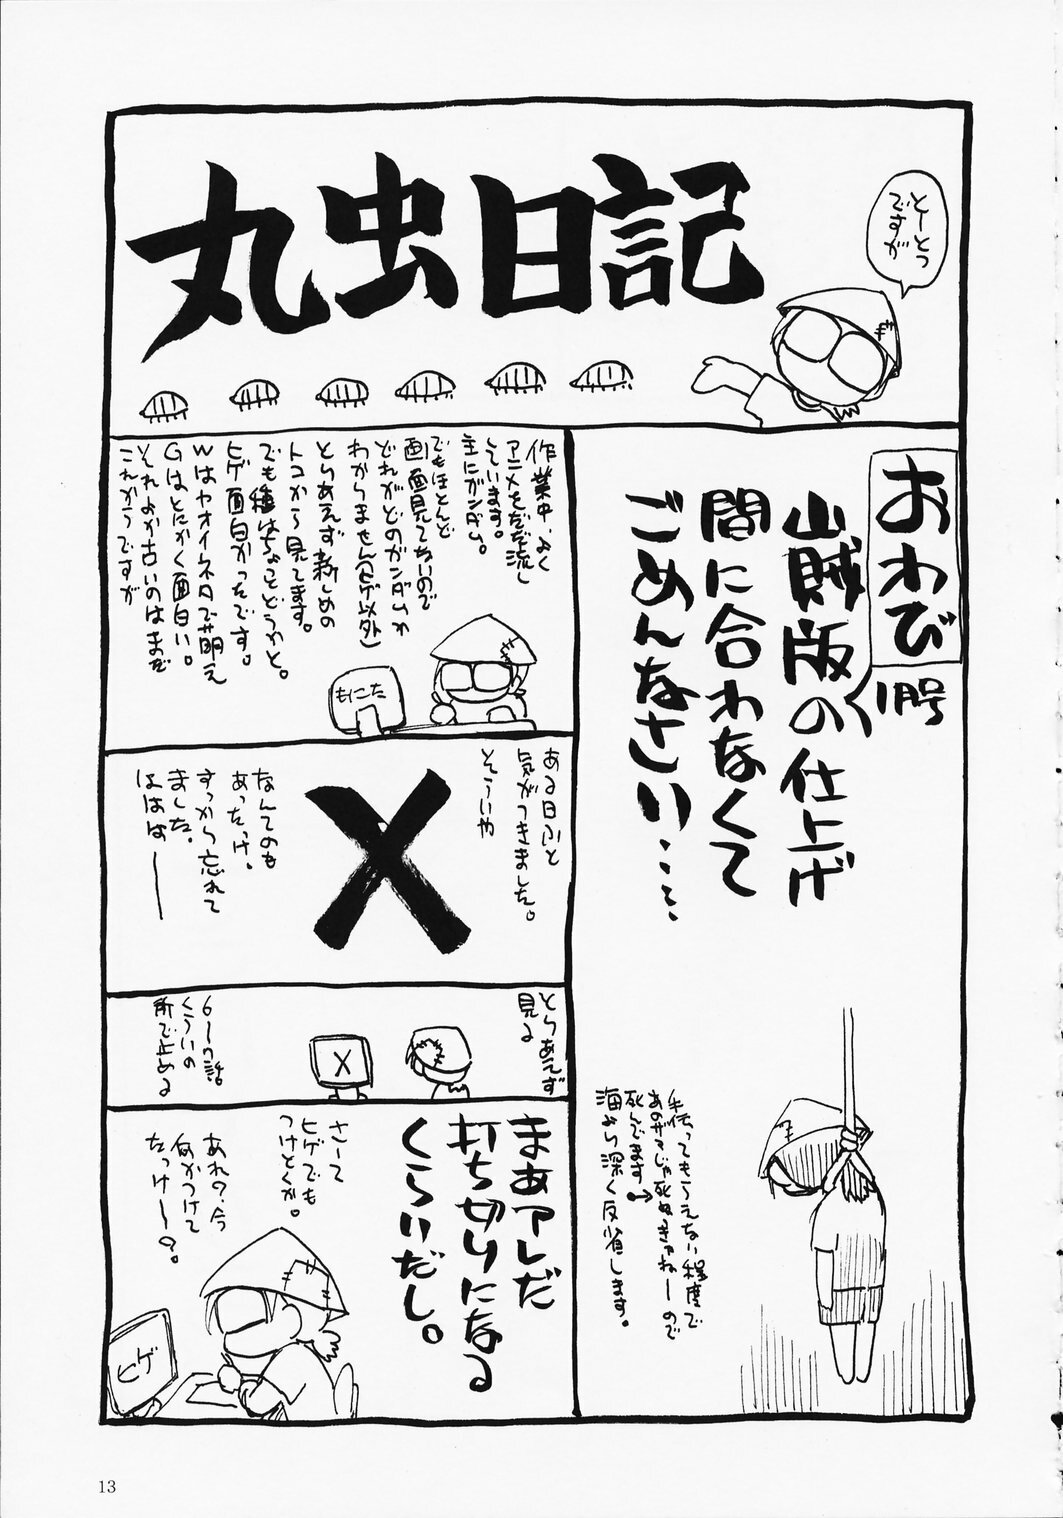 丸虫日記
とーとつ
ですが
おわび
1月号
山賊版の仕上げ
間に合わなくて
ごめんなさい・・・・
死んでます
海より深く反省します。
作業中、よく
アニメをだだ流し
しています。
主にガンダム。
でもほとんど
画面見てないので
どれがどのガンダムか
わかりません(ヒゲ以外)
とりあえず新しめの
トコから見てます。
でも種はちょっとどうかと。
ヒゲ面白かったです。
Wはヤオイネタで萌え
Gはとにかく面白い。
それよか古いのはまだ
これからですが
もにた
ある日ふと
気がつきました。
そういや
X
なんてのも
あったっけ。
すっかり忘れて
ました。
ははは――
とりあえず
見る
X
6〜7話
くらいの
所で止める
まあアレだ
打ち切りになる
くらいだし。
さーて
ヒゲでも
つけとくか。
あれ?今
何かつけて
たっけ〜?。
ヒゲ
13